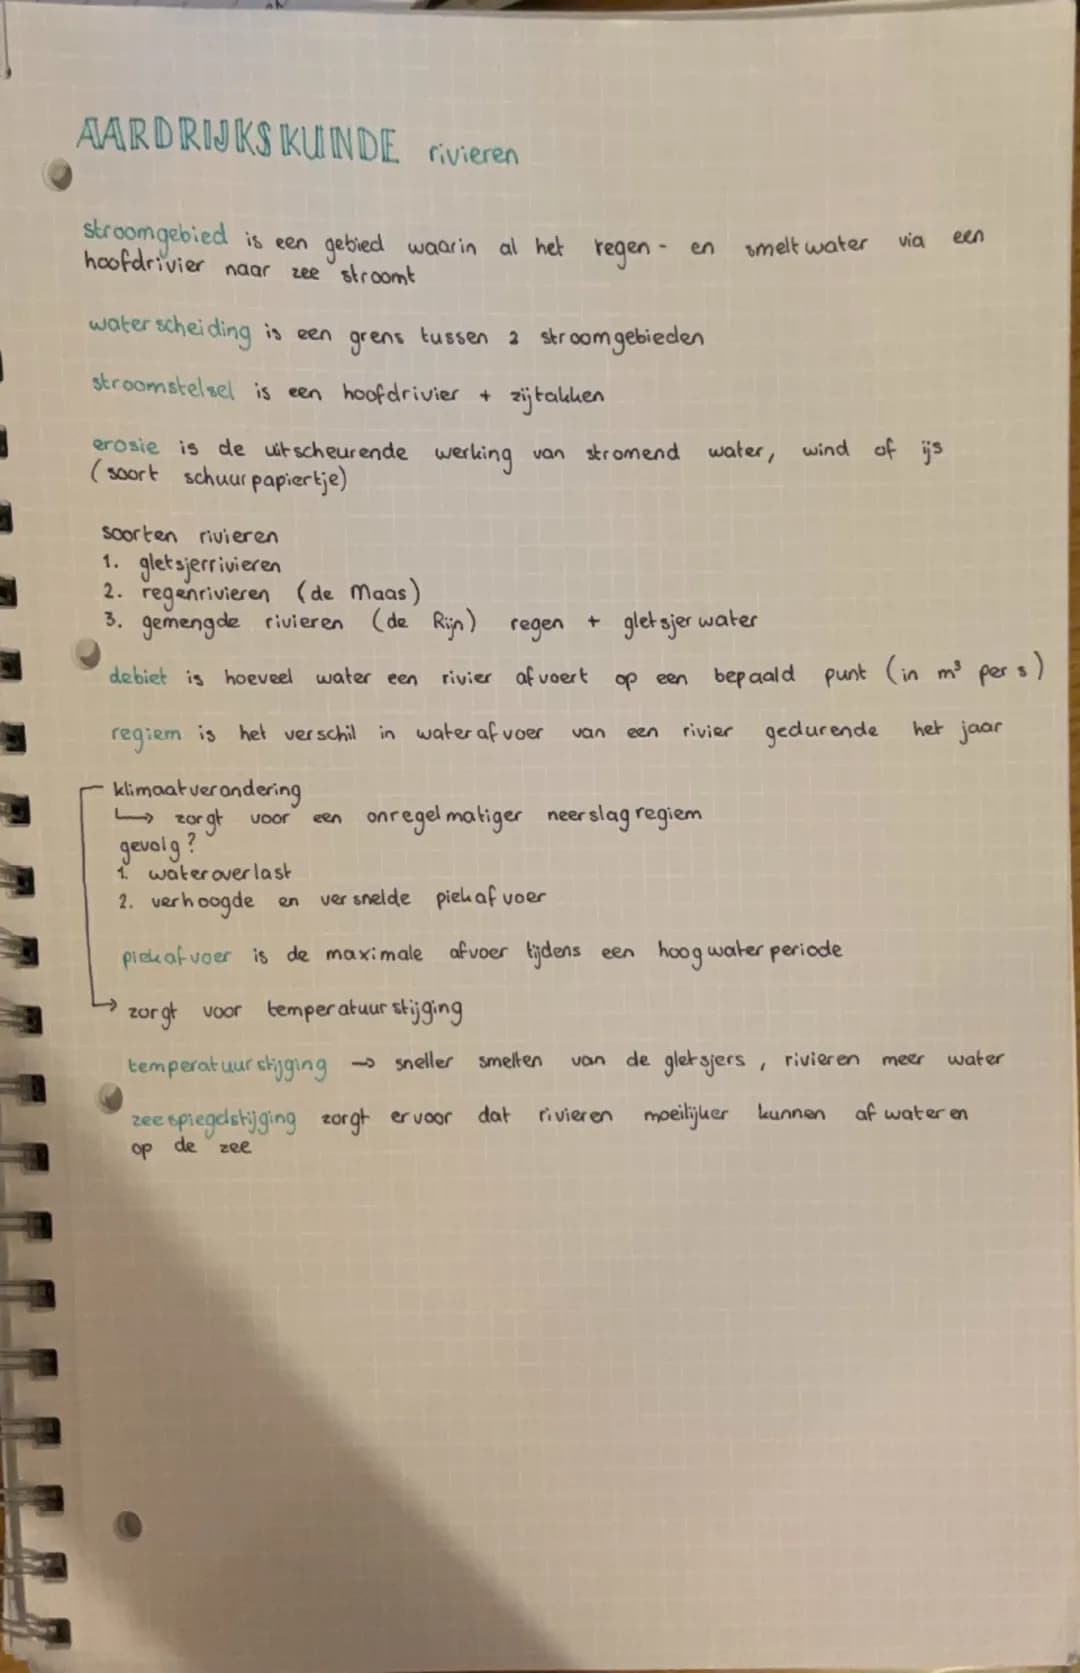 AARDRIJKSKUNDE rivieren
stroomgebied is een gebied waarin al het regen- en smeltwater via een
hoofdrivier naar zee stroomt
waterscheiding is een grens tussen 2 stroomgebieden
stroomstelsel is een hoofdrivier + zijtakken
erosie is de uitscheurende werking van stromend water, wind of ijs
(soort schuurpapiertje)
soorten rivieren
1. gletsjerrivieren
2. regenrivieren (de Maas)
3. gemengde rivieren (de Rijn) regen + gletsjerwater
debiet is hoeveel water een rivier afvoert op een bepaald punt (in m³ per s)
regiem is het verschil in waterafvoer van een rivier gedurende het jaar
klimaatverandering
↳ zorgt voor een onregelmatiger neerslagregiem
gevolg?
1. wateroverlast
2. verhoogde en versnelde piekafvoer
piekafvoer is de maximale afvoer tijdens een hoogwaterperiode
→ zorgt voor temperatuurstijging
temperatuurstijging → sneller smelten van de gletsjers, rivieren meer water
zeespiegelstijging zorgt ervoor dat rivieren moeilijker kunnen afwateren
op de zee